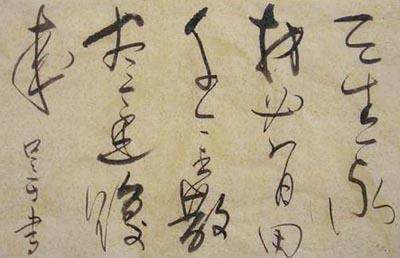 天生我
材必有用
千金散
尽还復
来
吕 书